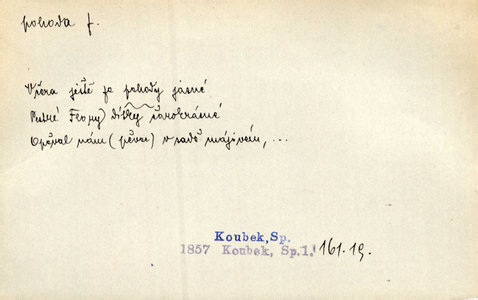 pohoda f.
Včera ještě za pohody jasné
Pestré Flory) dítky čarokrásné
Opěval nám (pěvec) v sadě májovém, ...
Koubek, Sp.
1857 Koubek, Sp.1. 161.19.